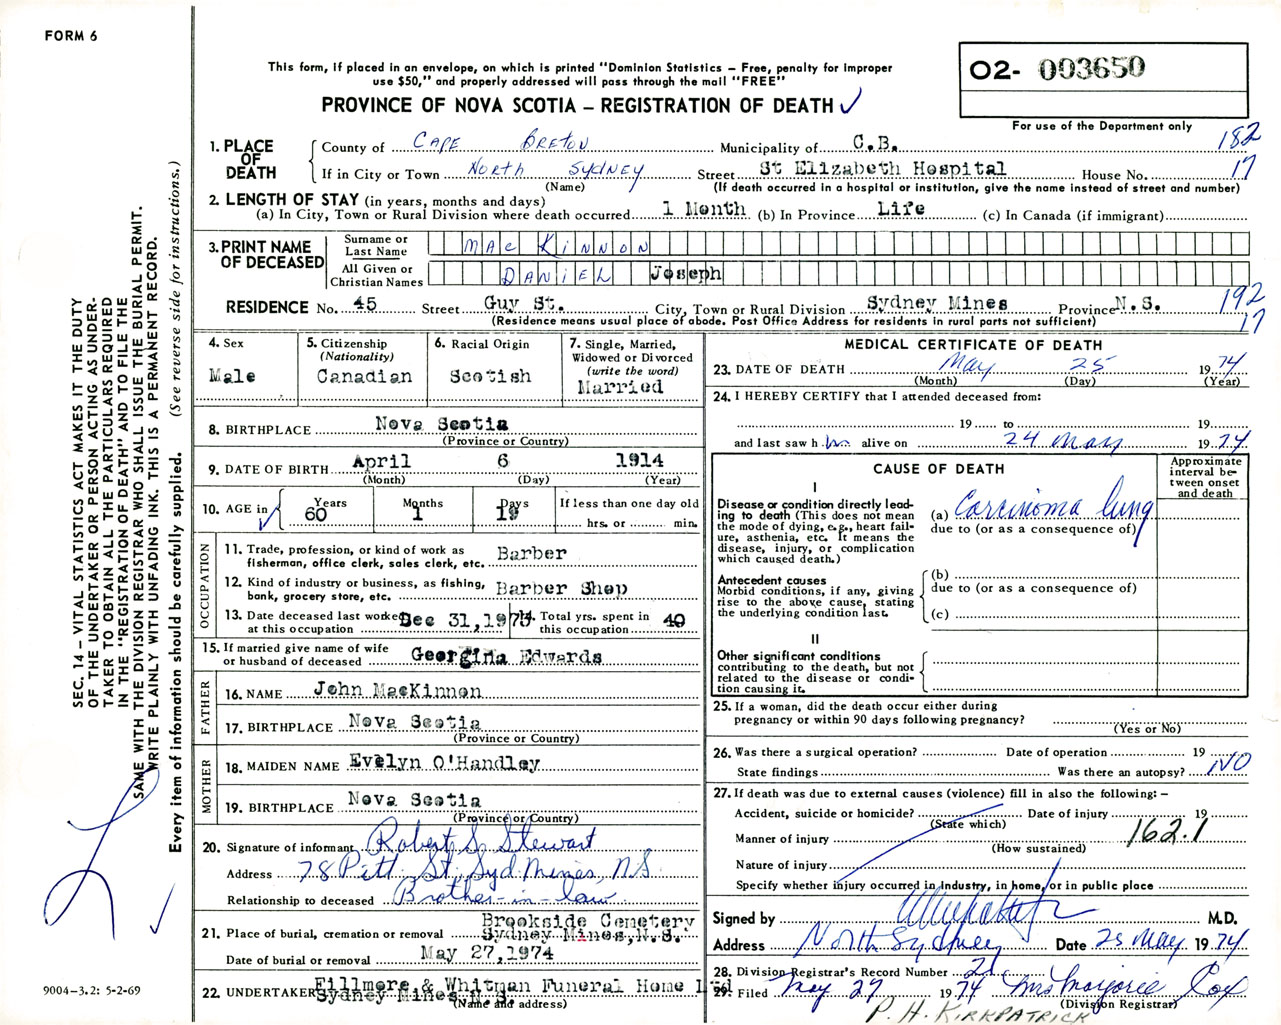 FORM 6
This form, if placed in an envelope, on which is printed "Dominion Statistics – Free, penalty for improper
use $50," and properly addressed will pass through the mail "FREE"
02- 003650
PROVINCE OF NOVA SCOTIA – REGISTRATION OF DEATH ✓
For use of the Department only
1. PLACE OF DEATH
County of Cape Breton Municipality of C.B. 182
If in City or Town North Sydney Street St Elizabeth Hospital House No. 17
(Name) (If death occurred in a hospital or institution, give the name instead of street and number)
2. LENGTH OF STAY (in years, months and days)
(a) In City, Town or Rural Division where death occurred 1 Month (b) In Province Life (c) In Canada (if immigrant)
3. PRINT NAME OF DECEASED
Surname or Last Name MacKinnon
All Given or Christian Names DANIEL Joseph
RESIDENCE No. 45 Street Guy St. City, Town or Rural Division Sydney Mines Province N.S. 192
(Residence means usual place of abode. Post Office Address for residents in rural parts not sufficient) 17
4. Sex
Male
5. Citizenship
(Nationality)
Canadian
6. Racial Origin
Scotish
7. Single, Married,
Widowed or Divorced
(write the word)
Married
8. BIRTHPLACE Nova Scotia
(Province or Country)
9. DATE OF BIRTH April 6 1914
(Month) (Day) (Year)
10. AGE in ✓
Years Months Days If less than one day old
60 1 19 hrs. or min.
OCCUPATION
11. Trade, profession, or kind of work as
fisherman, office clerk, sales clerk, etc. Barber
12. Kind of industry or business, as fishing,
bank, grocery store, etc. Barber Shop
13. Date deceased last worked
at this occupation Dec 31,1973
14. Total yrs. spent in
this occupation 40
15. If married give name of wife
or husband of deceased Georgina Edwards
FATHER
16. NAME John MacKinnon
17. BIRTHPLACE Nova Scotia
(Province or Country)
MOTHER
18. MAIDEN NAME Evelyn O'Handley
19. BIRTHPLACE Nova Scotia
(Province or Country)
20. Signature of informant Robert S. Stewart
Address 78 Pitt St. Syd Mines, N.S.
Relationship to deceased Brother-in-law
21. Place of burial, cremation or removal Brookside Cemetery
Sydney Mines, N.S.
Date of burial or removal May 27,1974
22. UNDERTAKER Fillmore & Whitman Funeral Home Ltd
Sydney Mines N.S.
(Name and address)
MEDICAL CERTIFICATE OF DEATH
23. DATE OF DEATH May 25 1974
(Month) (Day) (Year)
24. I HEREBY CERTIFY that I attended deceased from:
19 to 19
and last saw him alive on 24 May 1974
CAUSE OF DEATH
Approximate
interval be-
tween onset
and death
I
Disease or condition directly lead-
ing to death (This does not
mean the mode of dying, e.g., heart fail-
ure, asthenia, etc. It means the
disease, injury, or complication
which caused death.)
(a) Carcinoma lung
due to (or as a consequence of)
Antecedent causes
Morbid conditions, if any, giving
rise to the above cause, stating
the underlying condition last.
(b)
due to (or as a consequence of)
(c)
II
Other significant conditions
contributing to the death, but not
related to the disease or condi-
tion causing it.
25. If a woman, did the death occur either during
pregnancy or within 90 days following pregnancy?
(Yes or No)
26. Was there a surgical operation? Date of operation 19
State findings Was there an autopsy? NO
27. If death was due to external causes (violence) fill in also the following: –
Accident, suicide or homicide? Date of injury 19
(State which)
Manner of injury 162.1
(How sustained)
Nature of injury
Specify whether injury occurred in industry, in home, or in public place
Signed by M.D.
Address North Sydney Date 25 May 1974
28. Division Registrar's Record Number 21
29. Filed May 27 1974 Mrs Marjorie Cox
(Division Registrar)
P. H. KIRKPATRICK
SEC. 14 – VITAL STATISTICS ACT MAKES IT THE DUTY
OF THE UNDERTAKER OR PERSON ACTING AS UNDER-
TAKER TO OBTAIN ALL THE PARTICULARS REQUIRED
IN THE "REGISTRATION OF DEATH" AND TO FILE THE
SAME WITH THE DIVISION REGISTRAR WHO SHALL ISSUE THE BURIAL PERMIT.
WRITE PLAINLY WITH UNFADING INK. THIS IS A PERMANENT RECORD.
Every item of information should be carefully supplied. (See reverse side for instructions.)
9004-3.2: 5-2-69